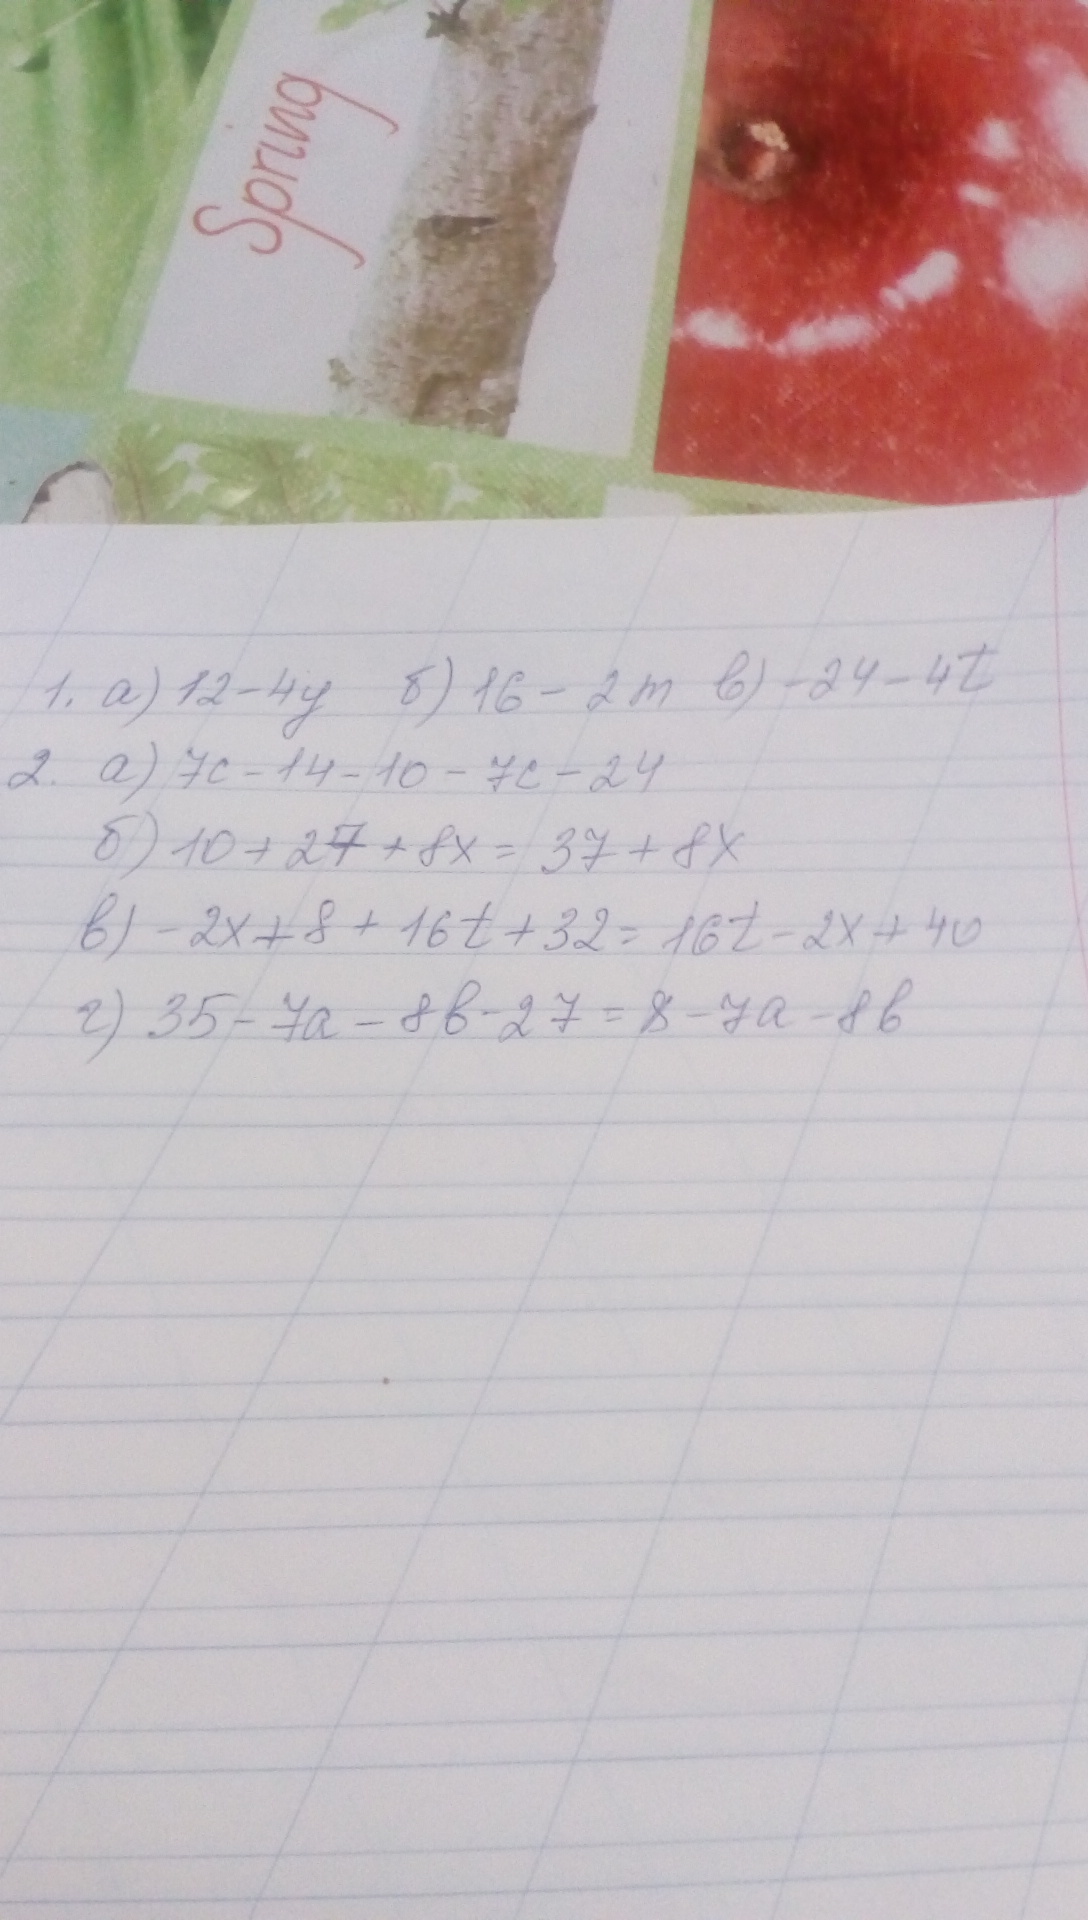 Spring
1. а) 12-4y б) 16-2m в) -24-4t
2. а) 7c-14-10-7c-24
б) 10+27+8x=37+8x
в) -2x+8+16t+32=16t-2x+40
г) 35-7a-8b-27=8-7a-8b